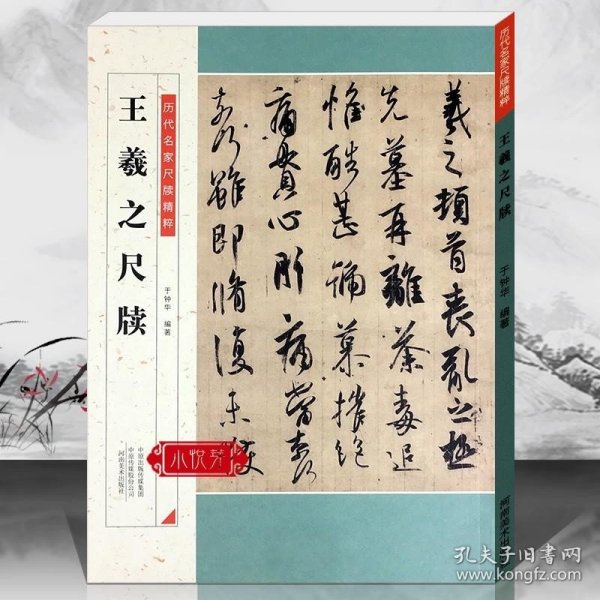 历代名家尺牍精粹
王羲之尺牍
于钟华 编著
中原出版传媒集团
中原传媒股份公司
河南美术出版社
羲之顿首丧乱之极
先墓再離荼毒追
惟酷甚號慕摧絶
痛貫心肝痛當奈
奈何雖即脩復未
小悦芽
历代名家尺牍精粹
王羲之尺牍
于钟华 编著
河南美术出
孔夫子旧书网
www.kongfz.com